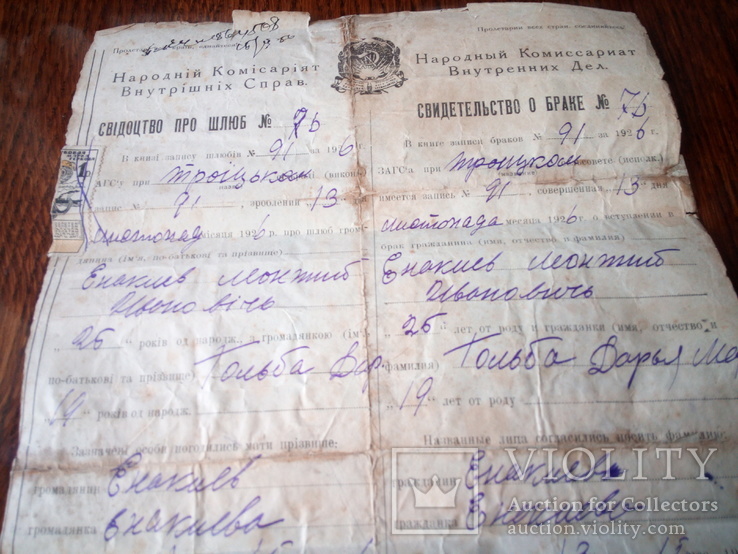 Народній Комісаріят
Внутрішніх Справ.
СВІДОЦТВО ПРО ШЛЮБ № 76
В книзі запису шлюбів № 91 за 1926 р.
ЗАГС'у при Троіцьком (виконк.)
запис № 91, зроблений 13
листопада місяця 1926 р. про шлюб гром.
дянина (ім'я, по-батькові та прізвище)
Енакиев
Ивановічь
„ 26 " років од народж. „ громадянкою (ім'я
по-батькові та прізвище) Гольба Дар
„ 19 " років од народж.
Зазначені особи погодились мати прізвище:
громадянин Енакиев
громадянка Енакиева
Пролетарии всех стран, соединяйтесь!
Народный Комиссариат
Внутренних Дел.
СВИДЕТЕЛЬСТВО О БРАКЕ № 76
В книге записи браков № 91 за 1926 г.
ЗАГС'а при Троицком совете (исполк.)
имеется запись № 91, совершенная „ 13 " дня
листопада месяца 1926 г. о вступлении в
брак гражданина (имя, отчество и фамилия)
Енакиев
Ивановичь
„ 26 " лет от роду и гражданки (имя, отчество и
фамилия) Гольба Дарья Ма
„ 19 " лет от роду
Названные лица согласились носить фамилию:
гражданин Енакиев
гражданка Енакиева
VIOLITY
Auction for Collectors
auction.violity.com